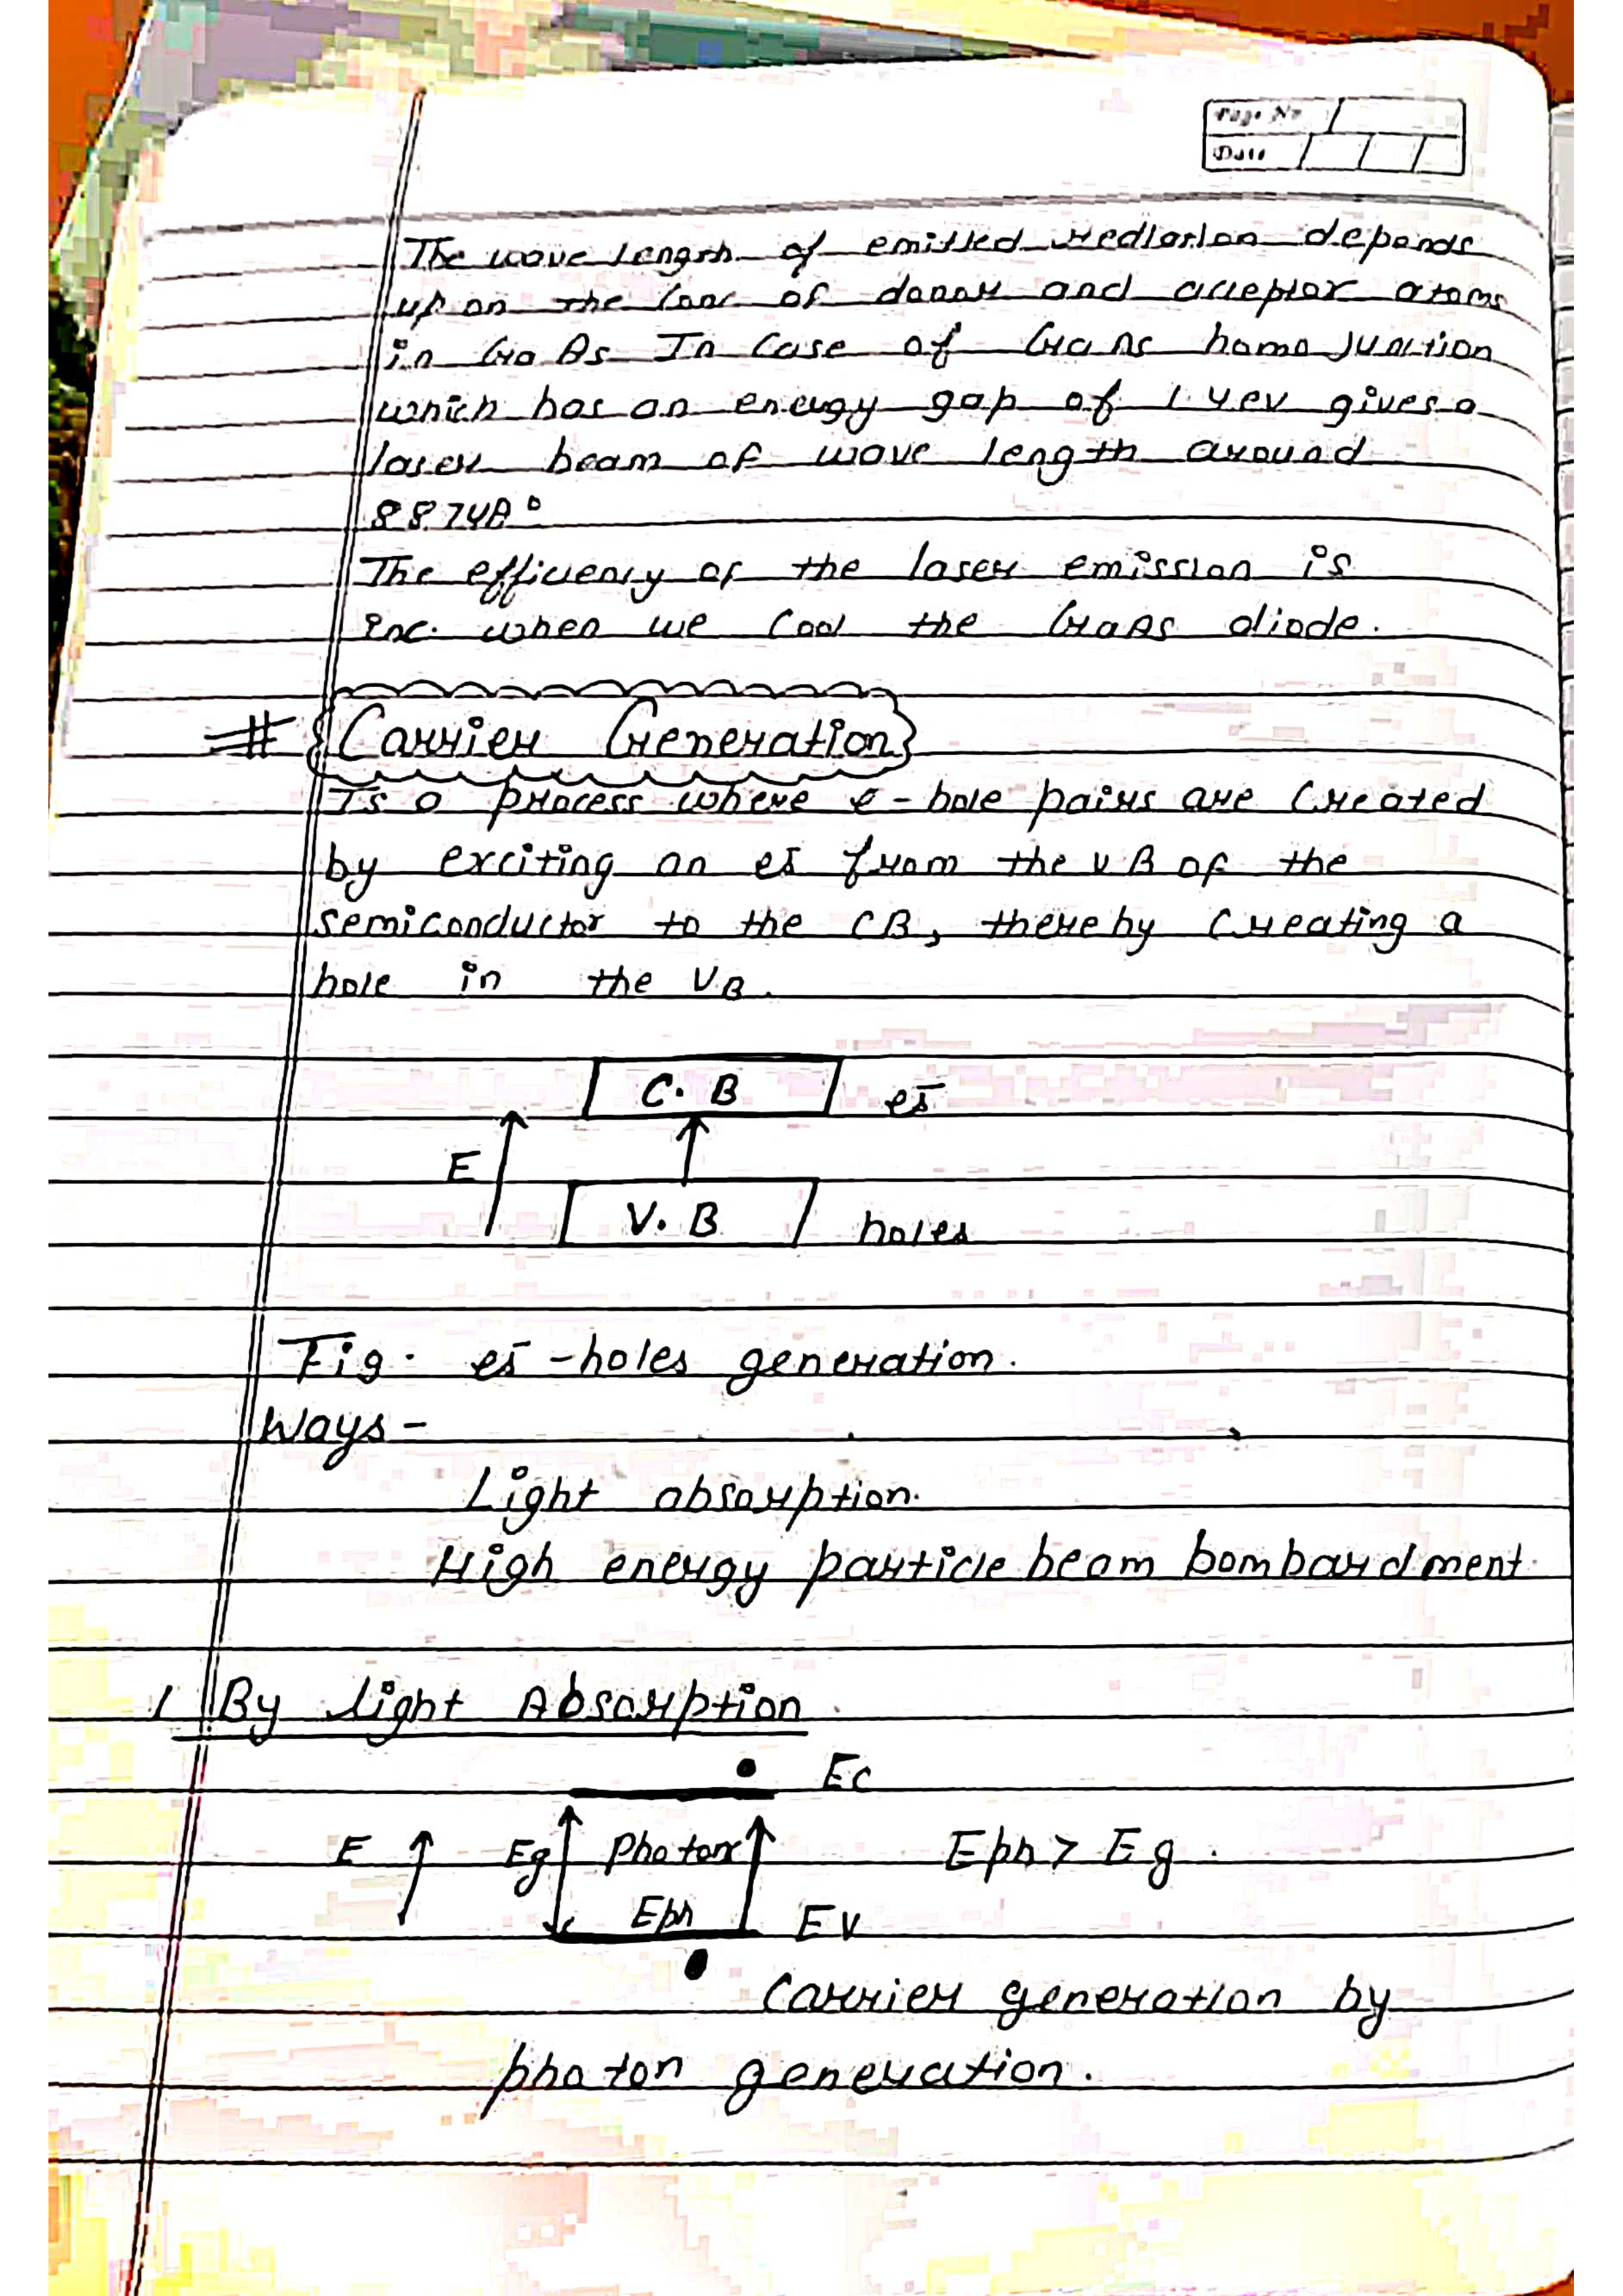 Page No
Date
The wave length of emitted rediation depends
up on the conc of donor and acceptor atoms
in GaAs In Case of GaAs homo Junction
which has an energy gap of 1.4ev gives a
laser beam of wave length around
8874A°
The efficiency of the laser emission is
inc. when we cool the GaAs diode.
# Carrier Generation
Is a process where e-hole pairs are created
by exciting an es̄ from the VB of the
semiconductor to the CB, thereby creating a
hole in the VB.
C. B es̄
E
V. B holes
Fig. es̄ -holes generation.
Ways -
Light absorption.
High energy particle beam bombardment.
1 By light Absorption
Ec
E Eg Photon Eph > Eg.
Eph Ev
Carrier generation by
photon generation.